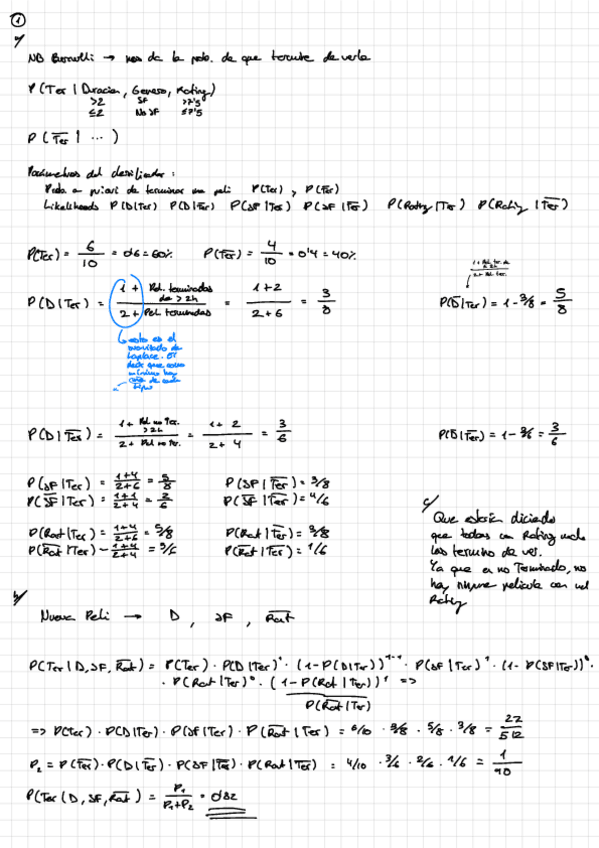 1
a)
NB Bernulli → nos da la prob. de que termine de verla
P(Ter | Duracion, Genero, Rating)
>2 SF >7'5
≤2 No SF ≤7'5
P(T̅e̅r̅ | ...)
Parametros del clasificador:
Prob a priori de terminar una peli P(Ter), P(T̅e̅r̅)
Likelihoods P(D|Ter) P(D|T̅e̅r̅) P(SF|Ter) P(SF|T̅e̅r̅) P(Rating|Ter) P(Rating|T̅e̅r̅)
P(Ter) = 6/10 = 0'6 = 60% P(T̅e̅r̅) = 4/10 = 0'4 = 40%
P(D|Ter) = (1 + Pel. terminadas de > 2h)/(2 + Pel terminadas) = (1+2)/(2+6) = 3/8 P(D̅|Ter) = 1 - 3/8 = 5/8
esto es el
de
Laplace. Es
decir que como
minimo hay
una de cada
tipo
P(D|T̅e̅r̅) = (1 + Pel no Ter. >2h)/(2 + Pel no ter.) = (1+2)/(2+4) = 3/6 P(D̅|T̅e̅r̅) = 1 - 3/6 = 3/6
P(SF|Ter) = (1+4)/(2+6) = 5/8 P(S̅F̅|T̅e̅r̅) = 3/8
P(S̅F̅|Ter) = (1+1)/(2+4) = 2/6 P(S̅F̅|T̅e̅r̅) = 4/6
P(Rat|Ter) = (1+4)/(2+6) = 5/8 P(Rat|T̅e̅r̅) = 3/8
P(R̅a̅t̅|Ter) - (1+4)/(2+4) = 5/6 P(R̅a̅t̅|T̅e̅r̅) = 1/6
c)
Que estaria diciendo
que todas con Rating malo
las termino de ver.
Ya que en no Terminado, no
hay ninguna pelicula con mal
Rating
b)
Nueva Peli → D, SF, R̅a̅t̅
P(Ter|D,SF,R̅a̅t̅) = P(Ter) · P(D|Ter)¹ · (1-P(D|Ter))¹⁻¹ · P(SF|Ter)¹ · (1-P(SF|Ter))⁰ ·
· P(Rat|Ter)⁰ · (1-P(Rat|Ter))¹ =>
P(R̅a̅t̅|Ter)
=> P(Ter) · P(D|Ter) · P(SF|Ter) · P(R̅a̅t̅|Ter) = 6/10 · 3/8 · 5/8 · 3/8 = 27/512
P₂ = P(T̅e̅r̅) · P(D|T̅e̅r̅) · P(SF|T̅e̅r̅) · P(Rat|T̅e̅r̅) = 4/10 · 3/6 · 2/6 · 1/6 = 1/90
P(Ter|D,SF,R̅a̅t̅) = P₁/(P₁+P₂) = 0'82